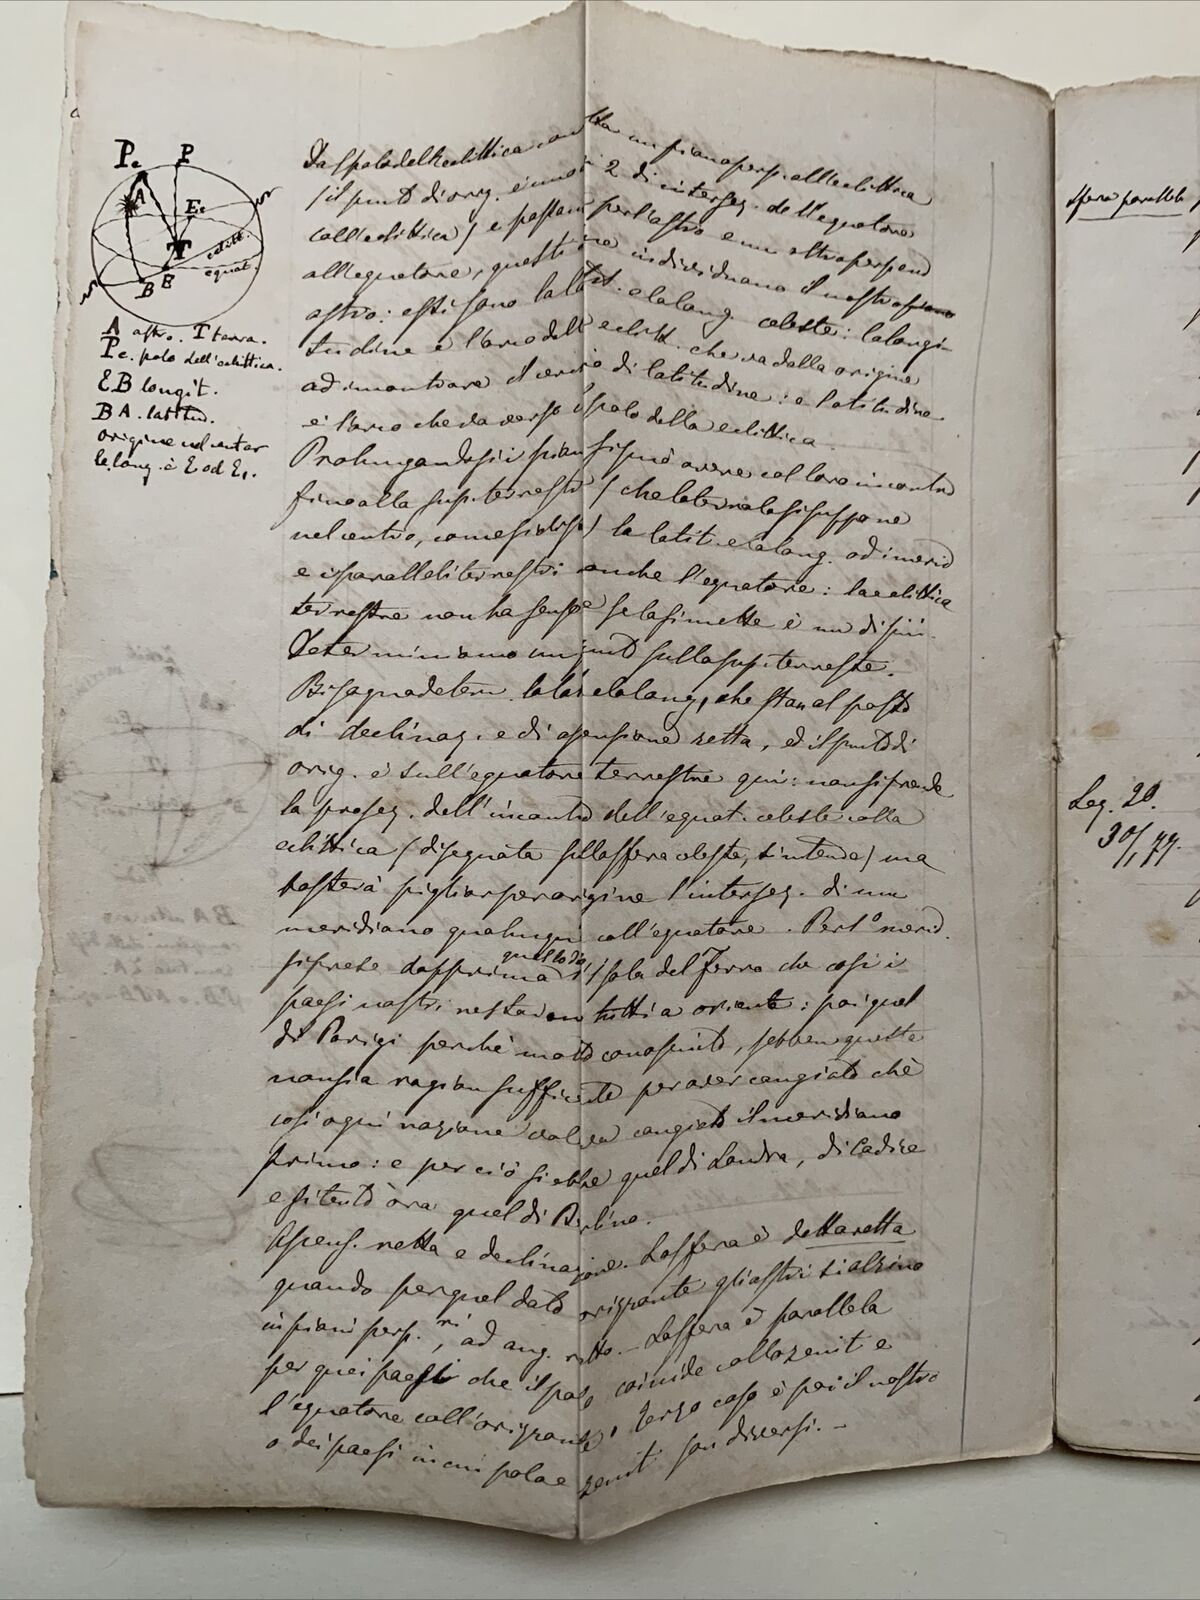 Pe P
A
E1
T
eclitt.
equat.
B E
A astro. T terra.
Pe. polo dell'eclittica.
EB longit.
BA. latitud.
origine nel contar
le long. è E od E1.
Dal polo dell'eclittica condotta un piano perp. all'eclittica
(il punto di orig. è uno dei 2 di interseg. dell'equatore
coll'eclittica) e passante per l'astro e un altro perpend
all'equatore, questi ne individuano il nostro piano
astro: essi sono la latit. e la long. celeste: la longi-
tudine è l'arco dell'eclitt. che va dalla origine
ad incontrare il cerchio di latitudine: e latitudine
è l'arco che va verso il polo della eclittica.
Prolungandosi i piani si può avere col loro incontro
fino alla sup. terrestre (che la terra la si suppone
nel centro, come si disse) la latit. e la long. ed i merid
e i paralleli terrestri anche l'equatore: la eclittica
terrestre non ha senso se la si mette è un di più.
Determiniamo un punto sulla sup. terrestre.
Bisogna determ. la lat. e la long, che stan al posto
di declinaz. e di ascensione retta, ed il punto di
orig. è sull'equatore terrestre qui: non si prende
la proiez. dell'incontro dell'equat. celeste colla
eclittica (disegnata sulla sfera celeste, s'intende) ma
basterà pigliar per origine l'interseg. di un
meridiano qualunque coll'equatore. Per 1º merid.
si prese dapprima quello dell'isola del Ferro che così i
paesi nostri restavan tutti a oriente: poi quel
di Parigi perchè molto conosciuto, sebben questa
non sia ragion sufficiente per aver cangiato chè
così ogni nazione volea cangiato il meridiano
primo: e per ciò si ebbe quel di Londra, di Cadice
e si tentò ora quel di Berlino.
Ascens. retta e declinazione. La sfera è detta retta
quando per quel dato orizzonte gli astri si alzino
in piani perp.ri, ad ang. retto. – La sfera è parallela
per quei paesi che il polo coincide collo zenit e
l'equatore coll'orizzonte, terzo caso è poi il nostro
o dei paesi in cui polo e zenit son diversi. –
sfera parallela
Leg. 20.
30/1, 79.